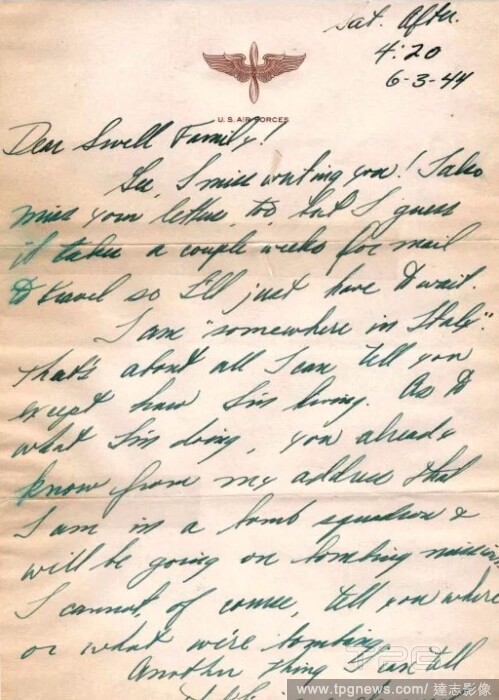 Sat. After.
4:20
6-3-44
U.S. AIR FORCES
Dear Swell Family!
Gee, I miss writing you! I also
miss your letters, too, but I guess
it takes a couple weeks for mail
to travel so I'll just have to wait.
I am "somewhere in Italy".
That's about all I can tell you
except how I'm living. As to
what I'm doing, you already
know from my address that
I am in a bomb squadron &
will be going on bombing missions.
I cannot, of course, tell you where
or what we're bombing.
Another thing I can tell
www.tpgnews.com/ 達志影像